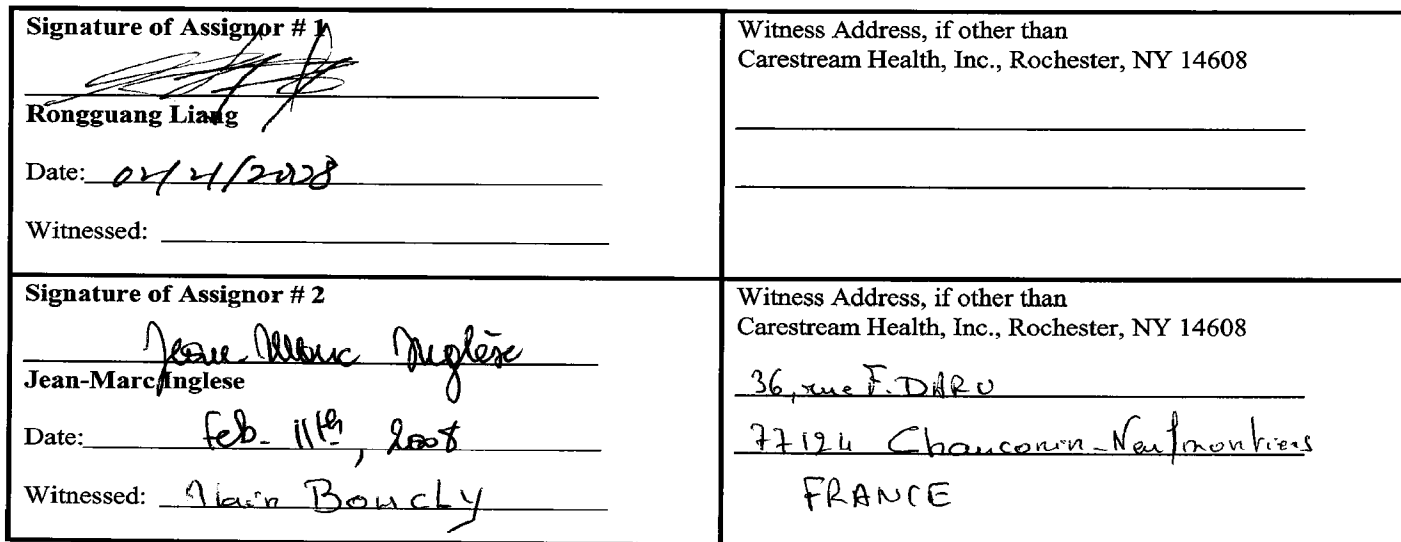 Signature of Assignor # 1
Rongguang Liang
Date: 02/21/2008
Witnessed:
Witness Address, if other than
Carestream Health, Inc., Rochester, NY 14608
Signature of Assignor # 2
Jean Marc Inglèse
Jean-Marc Inglese
Date: Feb- 11th, 2008
Witnessed: Alain Bouchy
Witness Address, if other than
Carestream Health, Inc., Rochester, NY 14608
36, rue F. DARU
77124 Chauconin-Neufmontiers
FRANCE